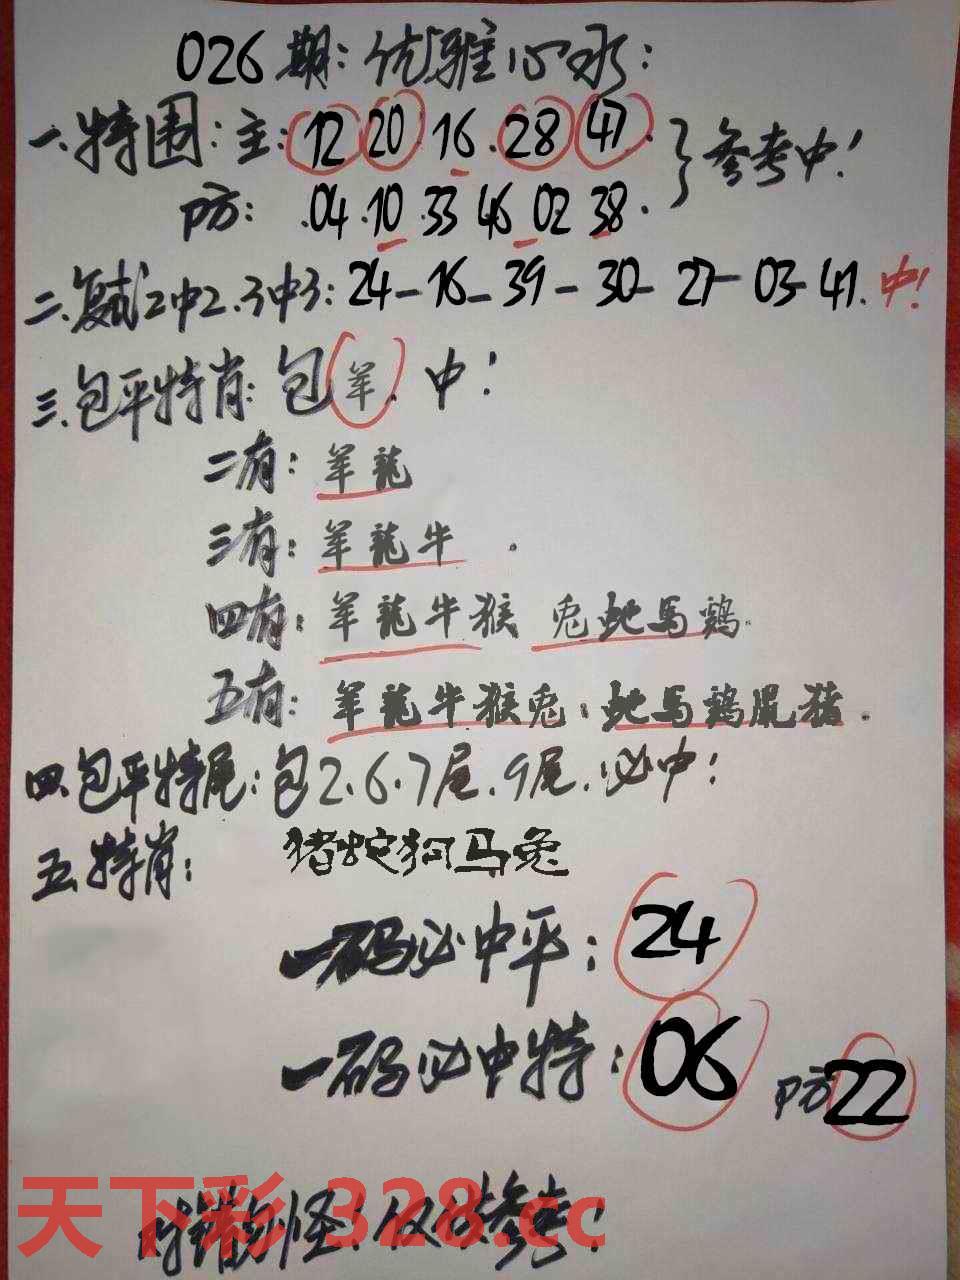 026期:优雅心水:
一.特围:主:12 20 16.28 47.}参考中!
防:.04.10.33 46 02 38.
二.复式2中2.3中3:24-16-39-30-27-03-41.中!
三.包平特肖:包羊.中!
二有:羊龍
三有:羊龍牛.
四有:羊龍牛猴 兎蛇馬鶏.
五有:羊龍牛猴兎:蛇馬鶏鼠猪.
四.包平特尾:包2.6.7尾.9尾.必中!
五.特肖:猪蛇狗马兔
一码必中平:24
一码必中特:06 防22
对错勿怪!仅供参考!
天下彩 328.cc